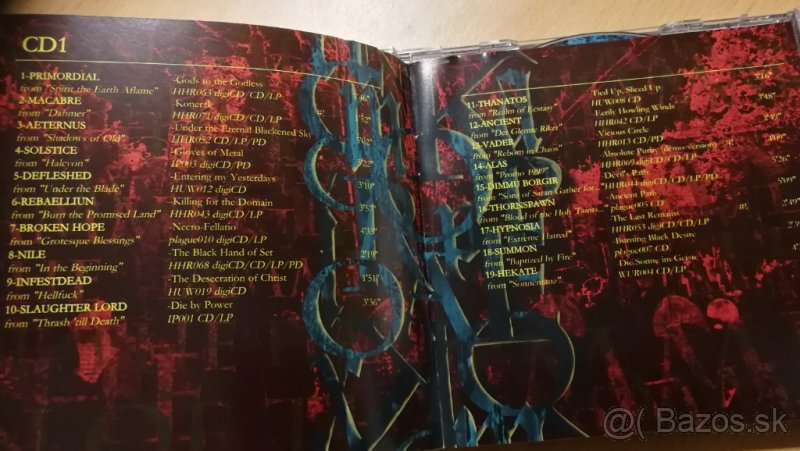 CD1
1-PRIMORDIAL -Gods to the Godless
from "Spirit the Earth Aflame" HHR063 digiCD/CD/LP
2-MACABRE -Konerak
from "Dahmer" HHR071 digiCD/CD/LP 1'52"
3-AETERNUS -Under the Eternal Blackened Sky
from "Shadows of Old" HHR052 CD/LP/PD 5'02"
4-SOLSTICE -Gloves of Metal
from "Halcyon" IP003 digiCD/PD 5'22"
5-DEFLESHED -Entering my Yesterdays
from "Under the Blade" HUW012 digiCD 3'10"
6-REBAELLIUN -Killing for the Domain
from "Burn the Promised Land" HHR043 digiCD/LP 3'57"
7-BROKEN HOPE -Necro-Fellatio
from "Grotesque Blessings" plague010 digiCD/LP 4'33"
8-NILE -The Black Hand of Set
from "In the Beginning" HHR068 digiCD/LP/PD 2'19"
9-INFESTDEAD -The Desecration of Christ
from "Hellfuck" HUW019 digiCD 1'51"
10-SLAUGHTER LORD -Die by Power
from "Thrash 'till Death" IP001 CD/LP 3'36"
11-THANATOS Tied Up, Sliced Up 3'16"
from "Realm of Ecstasy" HUW008 CD
12-ANCIENT -Eerily Howling Winds 3'48"
from "Det Glemte Riket" HHR042 CD/LP
13-VADER -Vicious Circle
from "Reborn in Chaos" HHR013 CD/PD
14-ALAS -Absolute Purity (demo-version)
from "Promo 1999" digiCD/LP
15-DIMMU BORGIR -Devil's Path 5'26"
from "Sons of Satan Gather for..." digiCD/CD/LP/PD
16-THORNSPAWN -Ancient Path 5'09"
from "Blood of the Holy Taints..." plague005 CD
17-HYPNOSIA -The Last Remains
from "Extreme Hatred" HHR053 digiCD/LP
18-SUMMON -Burning Black Desire
from "Baptized by Fire" plague007 CD
19-HEKATE -Die Sonne im Geiste
from "Sonnentanz" WUR004 CD/LP
@( Bazos.sk